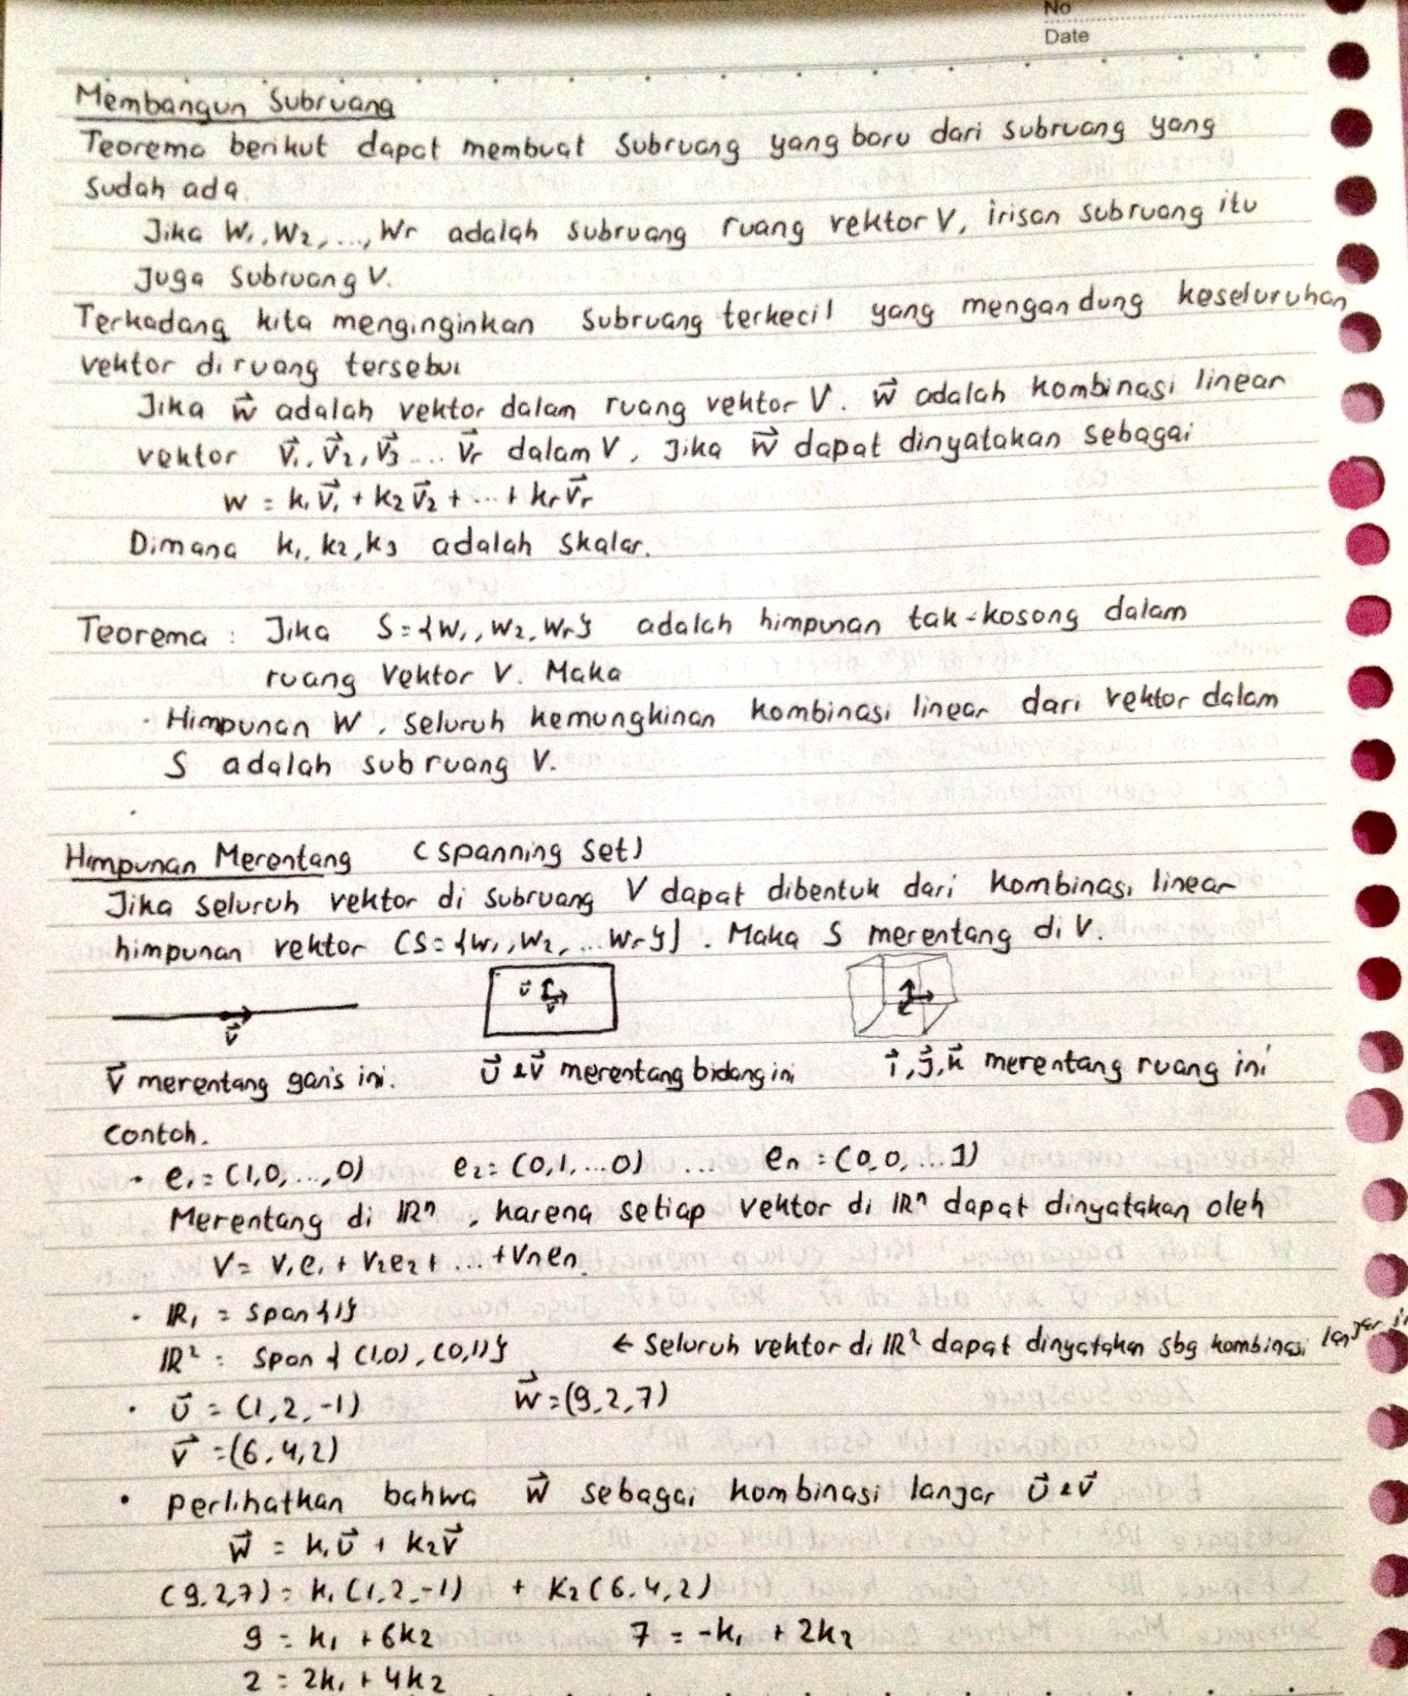 No
Date
Membangun Subruang
Teorema berikut dapat membuat subruang yang baru dari subruang yang
sudah ada.
Jika W₁, W₂, ..., Wr adalah subruang ruang vektor V, irisan subruang itu
Juga Subruang V.
Terkadang kita menginginkan subruang terkecil yang mengandung keseluruhan
vektor diruang tersebut
Jika w⃗ adalah vektor dalam ruang vektor V. w⃗ adalah kombinasi linear
vektor v⃗₁, v⃗₂, v⃗₃ ... v⃗r dalam V, Jika w⃗ dapat dinyatakan sebagai
w = k₁v⃗₁ + k₂v⃗₂ + ... + krv⃗r
Dimana k₁, k₂, k₃ adalah skalar.
Teorema : Jika S = {w₁, w₂, wr} adalah himpunan tak-kosong dalam
ruang Vektor V. Maka
· Himpunan W, seluruh kemungkinan kombinasi linear dari vektor dalam
S adalah subruang V.
Himpunan Merentang (spanning set)
Jika seluruh vektor di subruang V dapat dibentuk dari kombinasi linear
himpunan vektor (S = {w₁, w₂, ... wr}). Maka S merentang di V.
u⃗ v⃗
v⃗
v⃗ merentang garis ini. u⃗ & v⃗ merentang bidang ini i⃗, j⃗, k⃗ merentang ruang ini
Contoh.
· e₁ = (1,0,...,0) e₂ = (0,1,...0) ... en = (0,0,...1)
Merentang di ℝⁿ, karena setiap vektor di ℝⁿ dapat dinyatakan oleh
V = v₁e₁ + v₂e₂ + ... + vnen.
· ℝ₁ = span {1}
ℝ² = span { (1,0), (0,1)} ← Seluruh vektor di ℝ² dapat dinyatakan sbg kombinasi lanjar
· u⃗ = (1, 2, -1) w⃗ = (9, 2, 7)
v⃗ = (6, 4, 2)
· perlihatkan bahwa w⃗ sebagai kombinasi lanjar u⃗ & v⃗
w⃗ = k₁u⃗ + k₂v⃗
(9,2,7) = k₁(1,2,-1) + k₂(6,4,2)
9 = k₁ + 6k₂ 7 = -k₁ + 2k₂
2 = 2k₁ + 4k₂